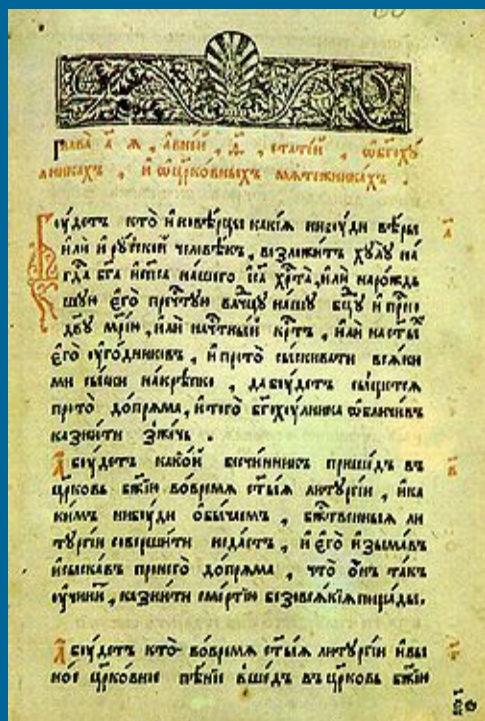 Глава̀ а҃ я , а в не́й , ѳ҃ , статей , ѡ бг҃оху
лникахъ , и ѡ цр҃ковныхъ мятежникахъ .
Боудетъ кто̀ и новѣрцы какия нибоуди вѣры
или и рускои человѣкъ , возложитъ хулу на
гд҃а бг҃а и сп҃са нашего іс҃а хр҃та , или нарожд
шую его преч҃тую влⷣчцу нашу бц҃у и прⷭно
дв҃у мр҃ию , или на чⷭтныи крⷭтъ , или на ст҃ы
его оугодниковъ , и про то сыскивати всяки
ми сыски накрѣпко , да боудетъ сыщется
про то допряма , и того бг҃охоулника ѡбличивъ
казнити зжечь .
А боудетъ какои бесчинникъ пришедъ въ
цр҃ковь бж҃ию во время ст҃ыя литургии , и ка
кимъ нибуди обычаемъ , бж҃твенныя ли
тургии совершити недастъ , и его изымавъ
и сыскавъ про него допряма , что онъ такъ
оучинит , казнити смертию безо всякия пощады .
А боудетъ кто во время ст҃ыя литургии и вы
ное цр҃ковное пѣние вшедъ въ цр҃ковь бж҃ию
а҃
в҃
г҃